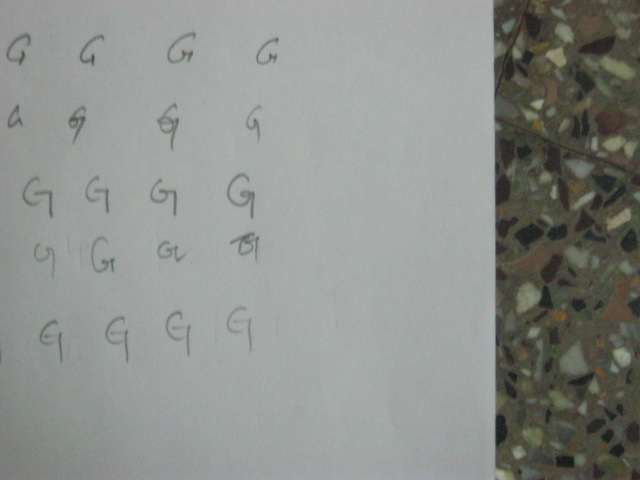 G G G G
G G G G
G G G G
G G G G
G G G G